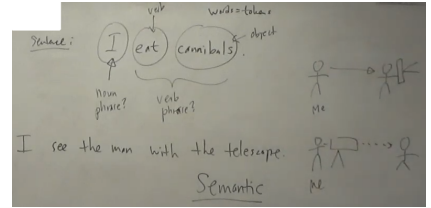 verb
words = tokens
object
Sentence:
I eat cannibals.
noun
phrase?
verb
phrase?
Me
I see the man with the telescope.
Me
Semantic